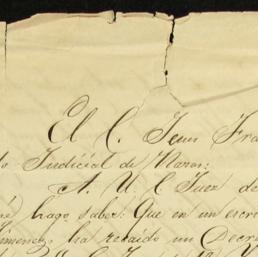 El C. Juan Fra
do Judicial de Naran:
A. U. C Juez de
hago saber: Que en un escri
Jimenez, ha recaido un Decre